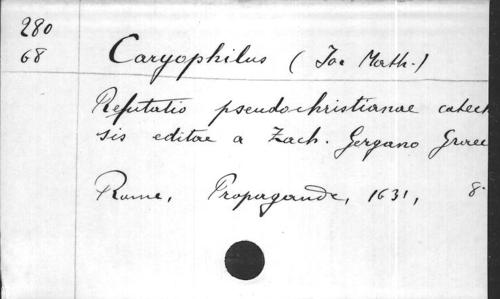 280
68
Caryophilus (Jo. Math.)
Refutatio pseudochristianae catech
sis editae a Zach. Gergano Graec
Rome, Propagande, 1631, 8.